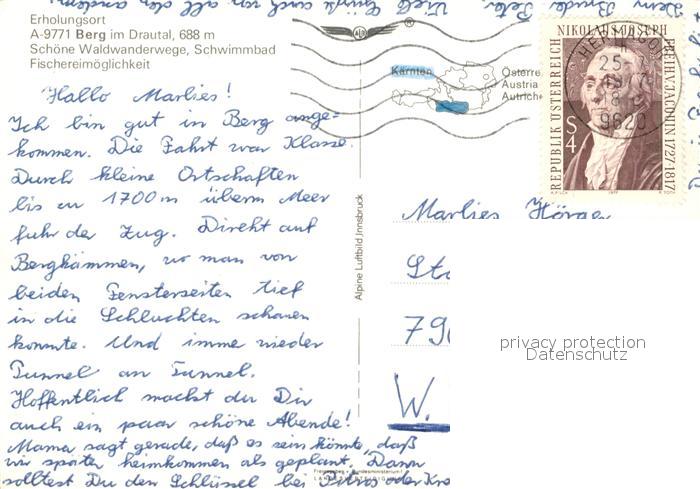 Erholungsort
A-9771 Berg im Drautal, 688 m
Schöne Waldwanderwege, Schwimmbad
Fischereimöglichkeit
Kärnten
Österre
Austria
Autrich
REPUBLIK ÖSTERREICH
NIKOLAUS JOSEPH
FREIH. V. JACQUIN 1727-1817
S 4
9620
Hallo Marlies!
Ich bin gut in Berg ange-
kommen. Die Fahrt war Klasse.
Durch kleine Ortschaften
bis zu 1700 m überm Meer
fuhr der Zug. Direkt auf
Bergkämmen, wo man von
beiden Fensterseiten tief
in die Schluchten schauen
konnte. Und imme wieder
Tunnel an Tunnel.
Hoffentlich machst du Dir
auch ein paar schöne Abende!
Mama sagt gerade, daß es sein könnte, daß
wir später heimkommen als geplant. Dann
solltest Du den Schlüssel bei Petros oder
Alpine Luftbild, Innsbruck
Marlies
79
W.
privacy protection
Datenschutz